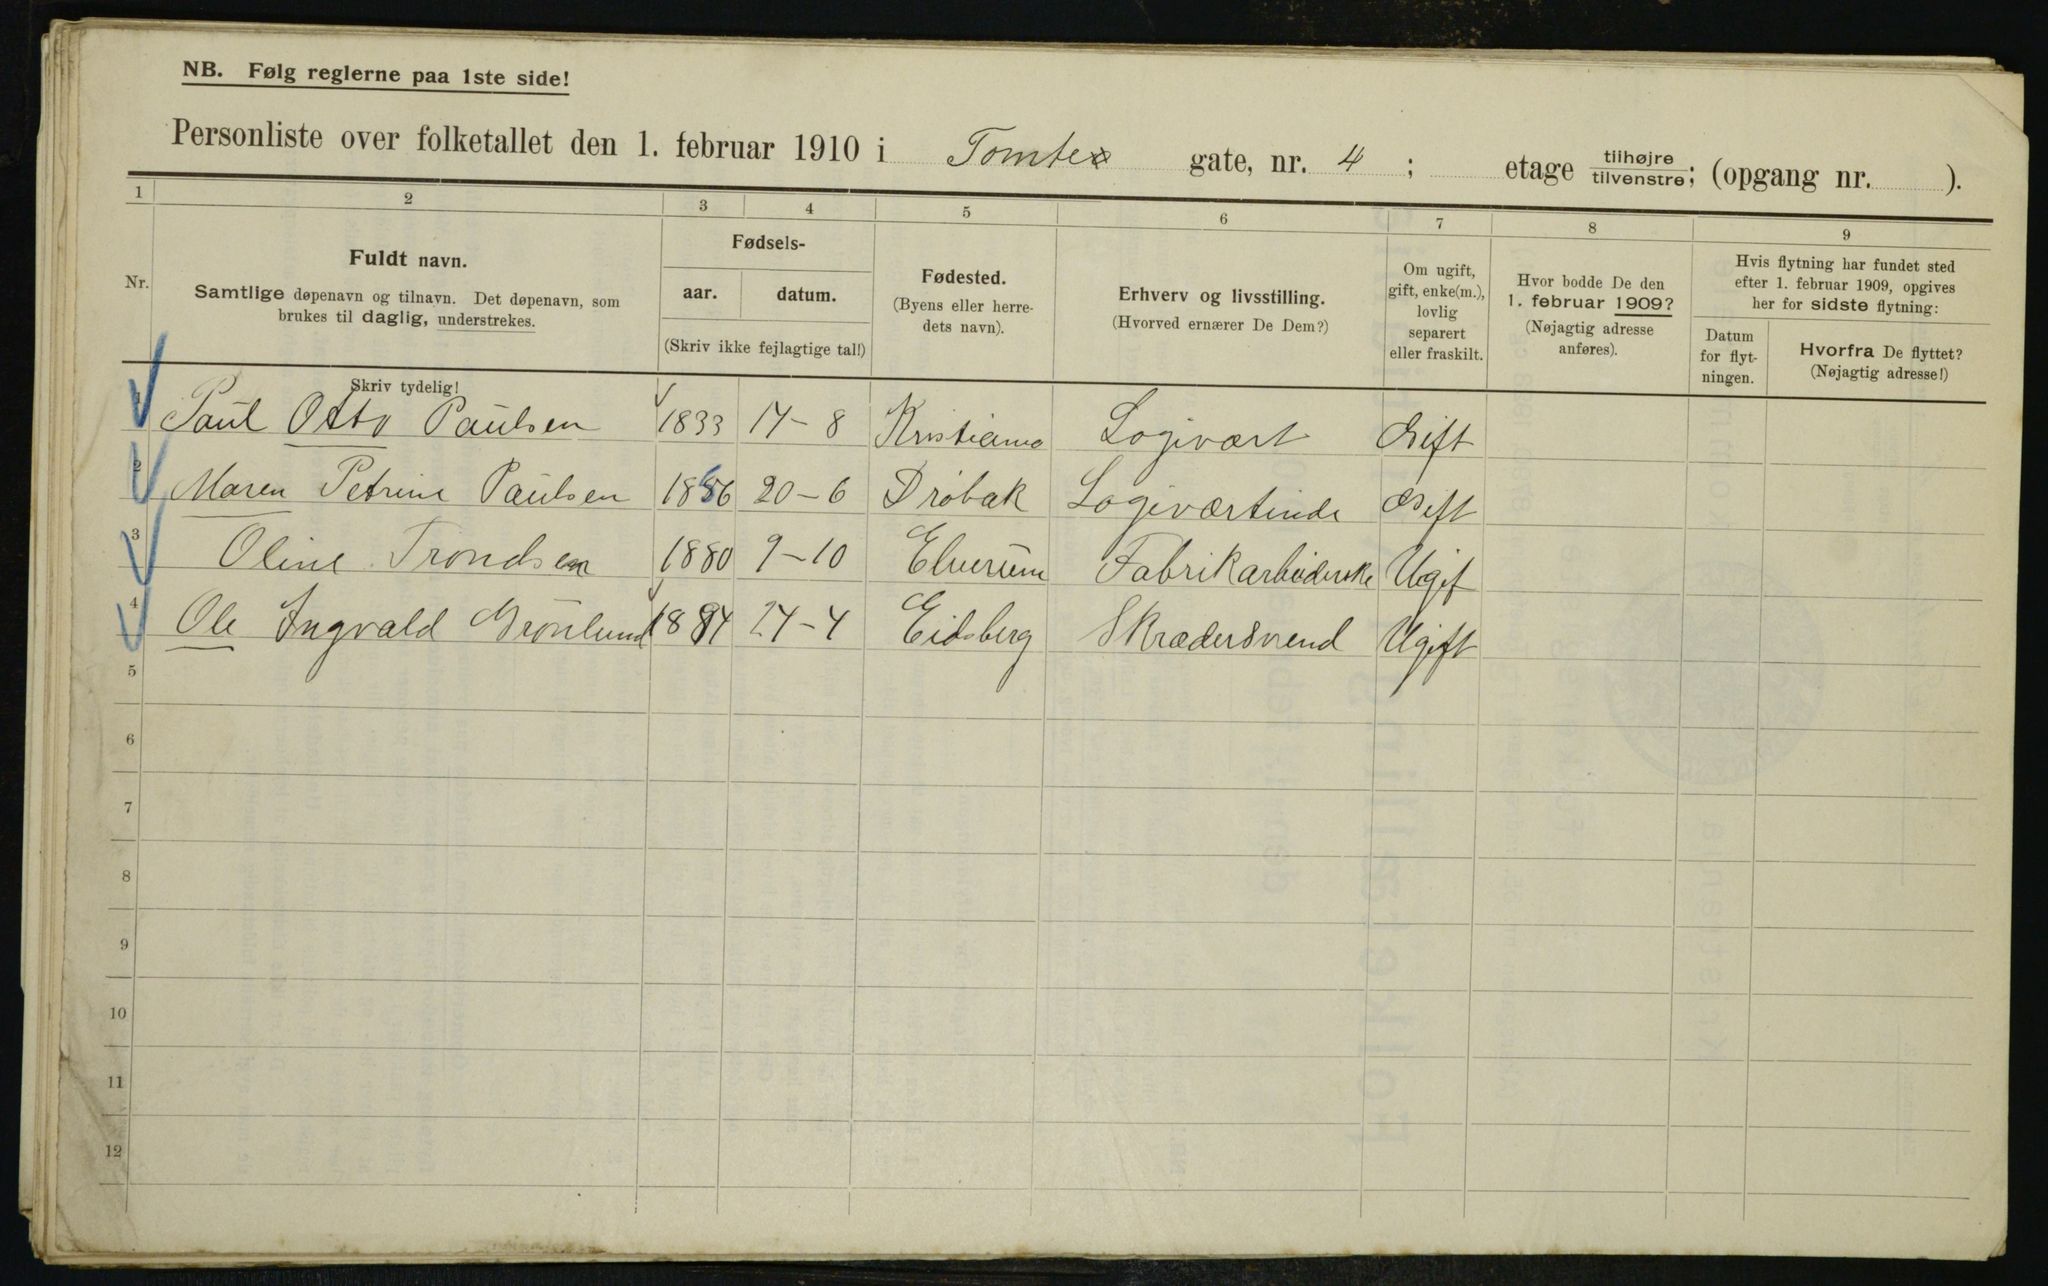 NB. Følg reglerne paa 1ste side!
Personliste over folketallet den 1. februar 1910 i Tomte gate, nr. 4 ; etage tilhøjre tilvenstre; (opgang nr. ).
1 2 3 4 5 6 7 8 9
Nr.
Fuldt navn.
Samtlige døpenavn og tilnavn. Det døpenavn, som
brukes til daglig, understrekes.
Skriv tydelig!
Fødsels-
aar. datum.
(Skriv ikke fejlagtige tal!)
Fødested.
(Byens eller herre-
dets navn).
Erhverv og livsstilling.
(Hvorved ernærer De Dem?)
Om ugift,
gift, enke(m.),
lovlig
separert
eller fraskilt.
Hvor bodde De den
1. februar 1909?
(Nøjagtig adresse
anføres).
Hvis flytning har fundet sted
efter 1. februar 1909, opgives
her for sidste flytning:
Datum
for flyt-
ningen.
Hvorfra De flyttet?
(Nøjagtig adresse!)
1 Paul Otto Paulsen 1833 14-8 Kristiania Logivært Gift
2 Maren Petrine Paulsen 1856 20-6 Drøbak Logiværtinde Gift
3 Oline Trondsen 1880 9-10 Elverum Fabrikarbeiderske Ugif
4 Ole Ingvald Grönlund 1884 24-4 Eidsberg Skrædersvend Ugift
5
6
7
8
9
10
11
12